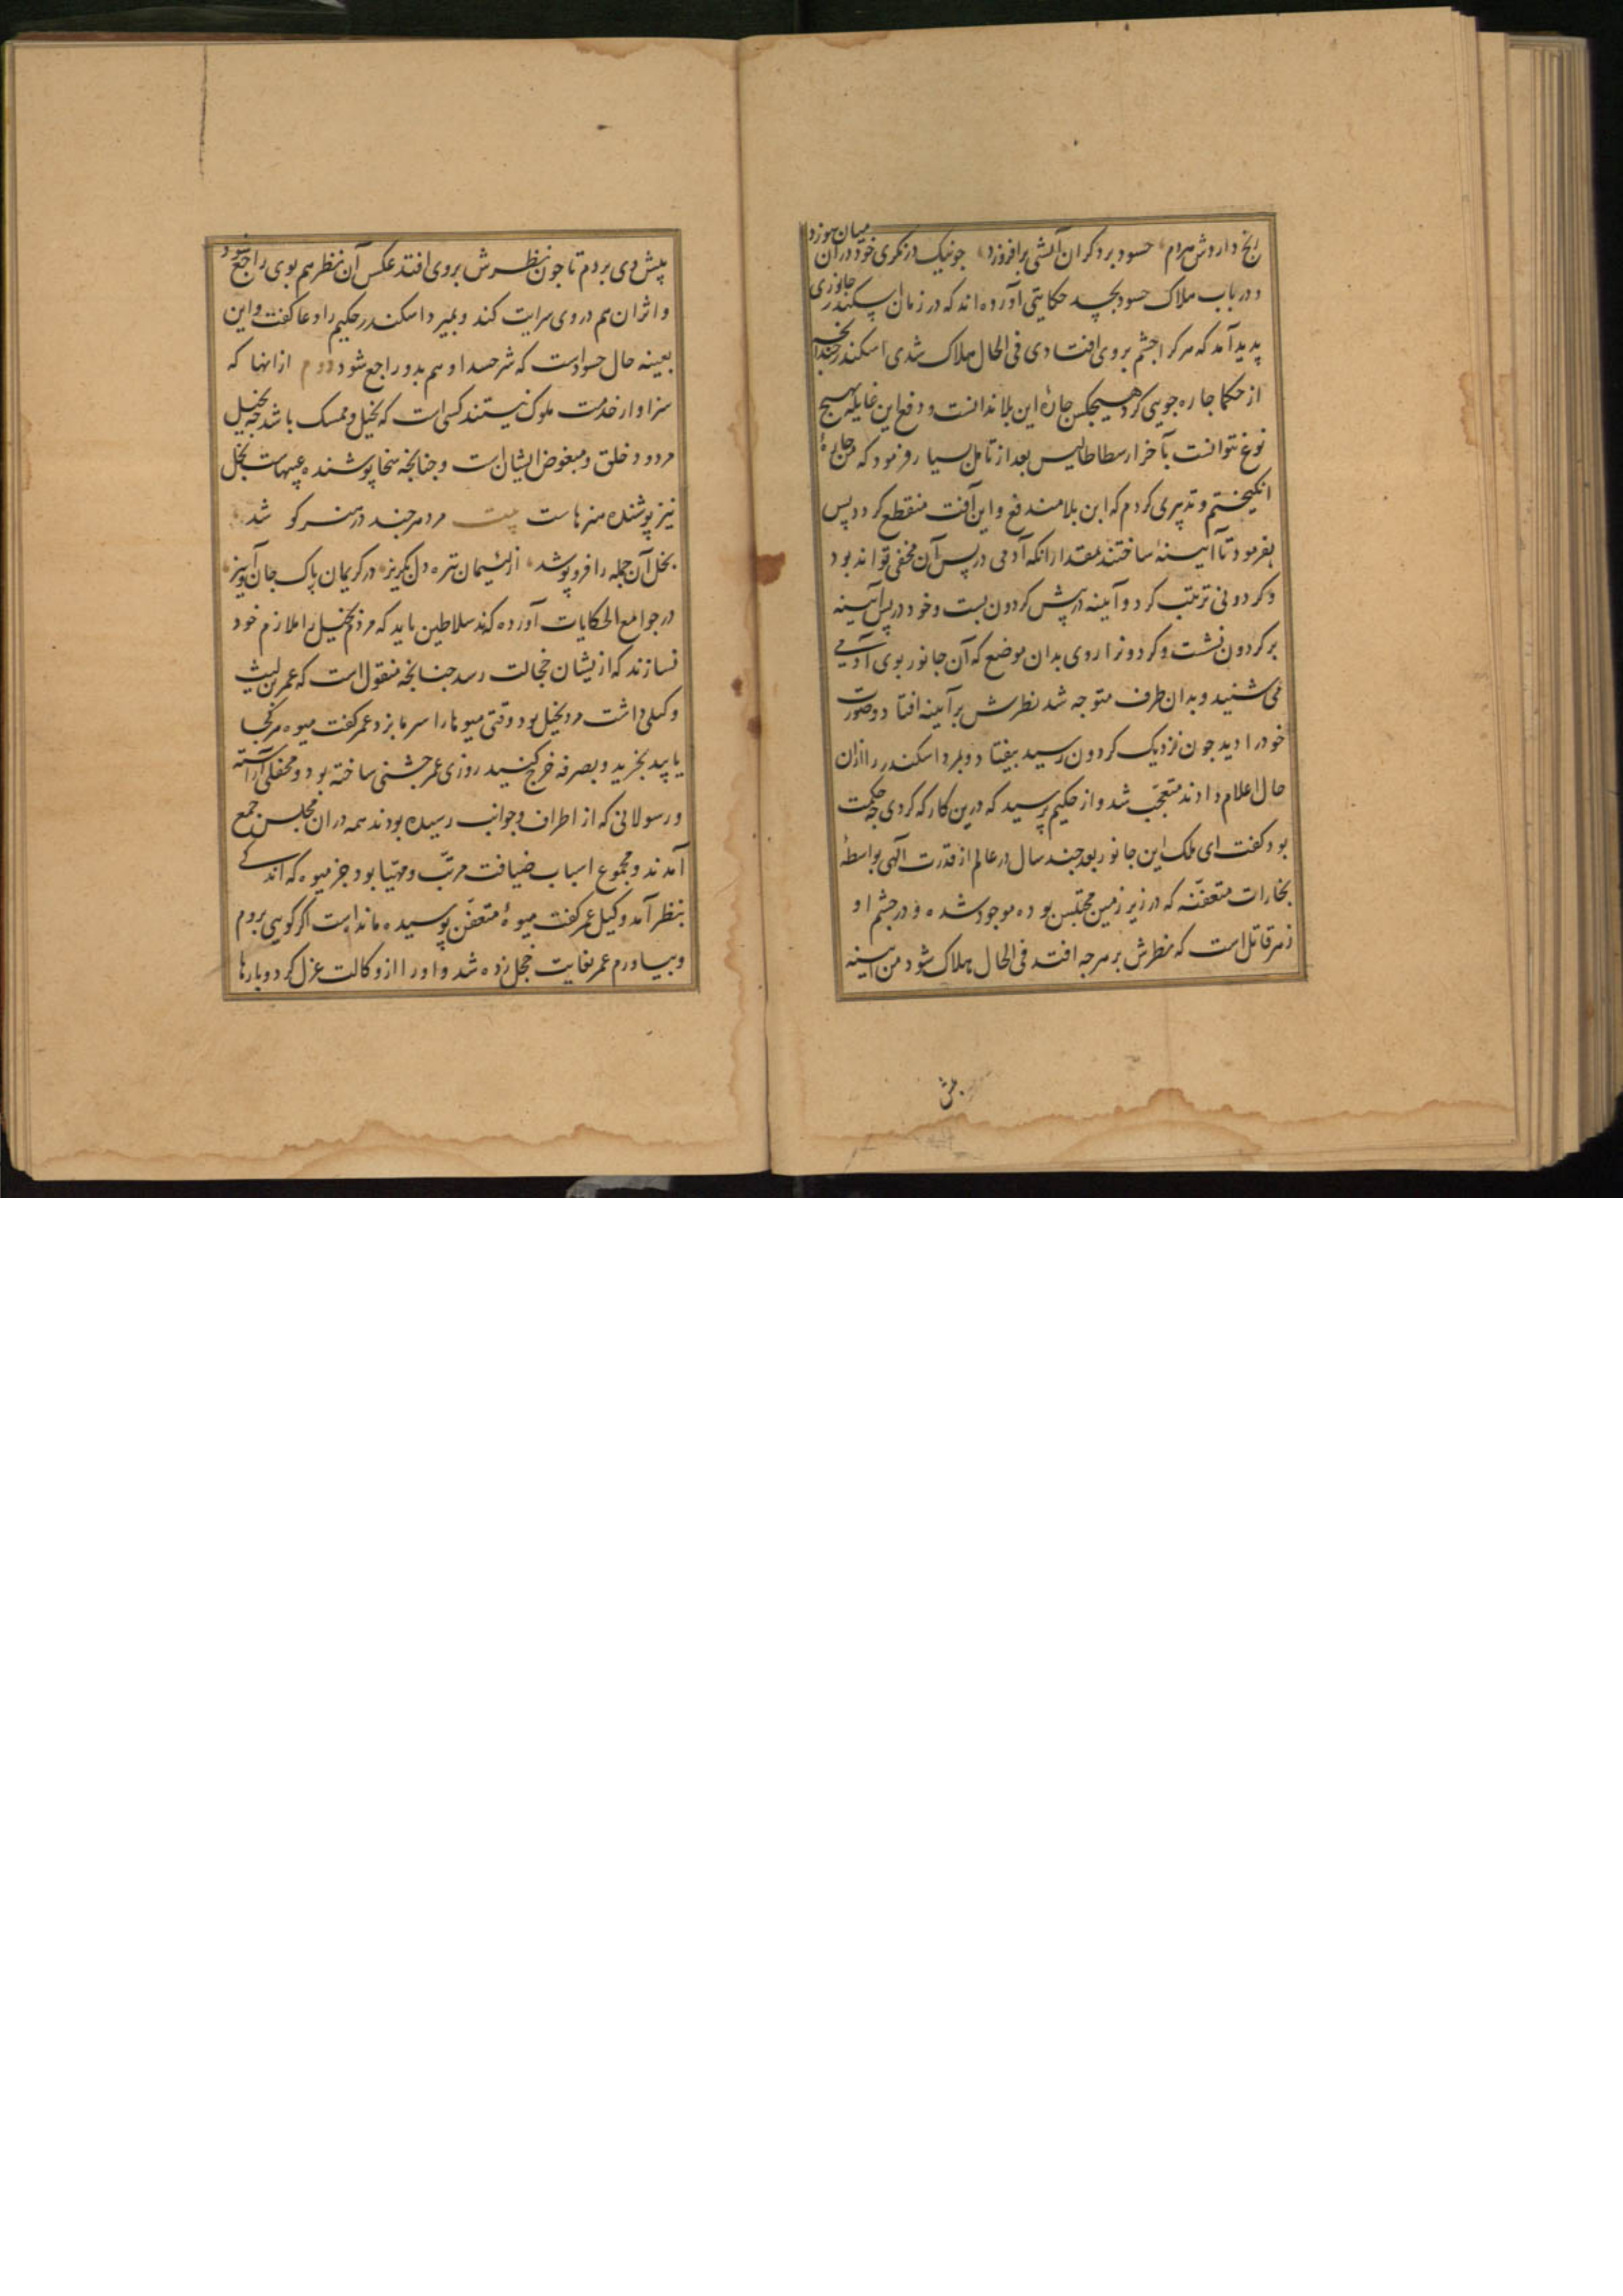 رنج داردش مدام حسود بر دکران آتشی برافروزد جو نیک درنکری خود در آن میان سوزد
و در باب هلاک حسود بحسد حکایتی آورده اند که در زمان اسکندر جانوری
پدید آمد که هر کرا جشم بروی افتادی فی الحال هلاک شدی اسکندر جندانجه
از حکما جاره جویی کرد هیجکس جارهٔ این بلا ندانست و دفع این غایله بهیج
نوع نتوانست بآخر ارسطاطالیس بعد از تامل بسیار فرمود که من جارهٔ
انکیختم و تدبیری کردم که این بلا مندفع و این آفت منقطع کردد پس
بفرمود تا آیینهٔ ساختند بمقدار انکه آدمی در پس آن مخفی تواند بود
و کردونی ترتیب کرد و آیینه در پیش کردون بست و خود در پس آیینه
بر کردون نشست و کردونرا روی بدان موضع که آن جانور بوی آدمی
می شنید و بدان طرف متوجه شد نظرش بر آیینه افتاد و صورت
خود را دید جون نزدیک کردون رسید بیفتاد و بمرد اسکندر را ازان
حال اعلام دادند متعجّب شد و از حکیم پرسید که درین کار که کردی جه حکمت
بود کفت ای ملک این جانور بعد جند سال در عالم از قدرت آلهی بواسطهٔ
بخارات متعفّنه که در زیر زمین محتبس بوده موجود شده و در جشم او
زهر قاتل است که نظرش بر هرجه افتد فی الحال هلاک شود من آیینه
پیش وی بردم تا جون نظرش بروی افتد عکس آن نظر هم بوی راجع شود
و اثر ان هم در وی سرایت کند و بمیرد اسکندر حکیم را دعا کفت و این
بعینه حال حسود است که شر حسد او هم بدو راجع شود دوم از انها که
سزاوار خدمت ملوک نیستند کسی است که بخیل و ممسک باشد جه بخیل
مردود خلق و مبغوض ایشان است و جنانجه سخا پوشنده عیبهاست بخل
نیز پوشنده هنرهاست بیت مرد هر جند در هنر کو شد
بخل آن جمله را فرو پوشد از لئیمان تیره دل بکریز در کریمان پاک جان آویز
در جوامع الحکایات آورده که سلاطین باید که مردم بخیل را ملازم خود
نسازند که ازیشان خجالت رسد جنانجه منقول است که عمر بن لیث
وکیلی داشت مرد بخیل بود وقتی میوها را سرما بزد عمر کفت میوه هر کجا
یابید بخرید و بصرفه خرج کنید روزی عمر جشنی ساخته بود و محفلی آراسته
و رسولانی که از اطراف و جوانب رسیده بودند همه در ان مجلس جمع
آمدند و مجموع اسباب ضیافت مرتّب و مهیّا بود جز میوه که اندکی
بنظر آمد وکیل عمر کفت میوهٔ متعفّن پوسیده مانده است اکر کویی بروم
و بیاورم عمر بغایت خجل زده شد و او را از وکالت عزل کرد و بارها